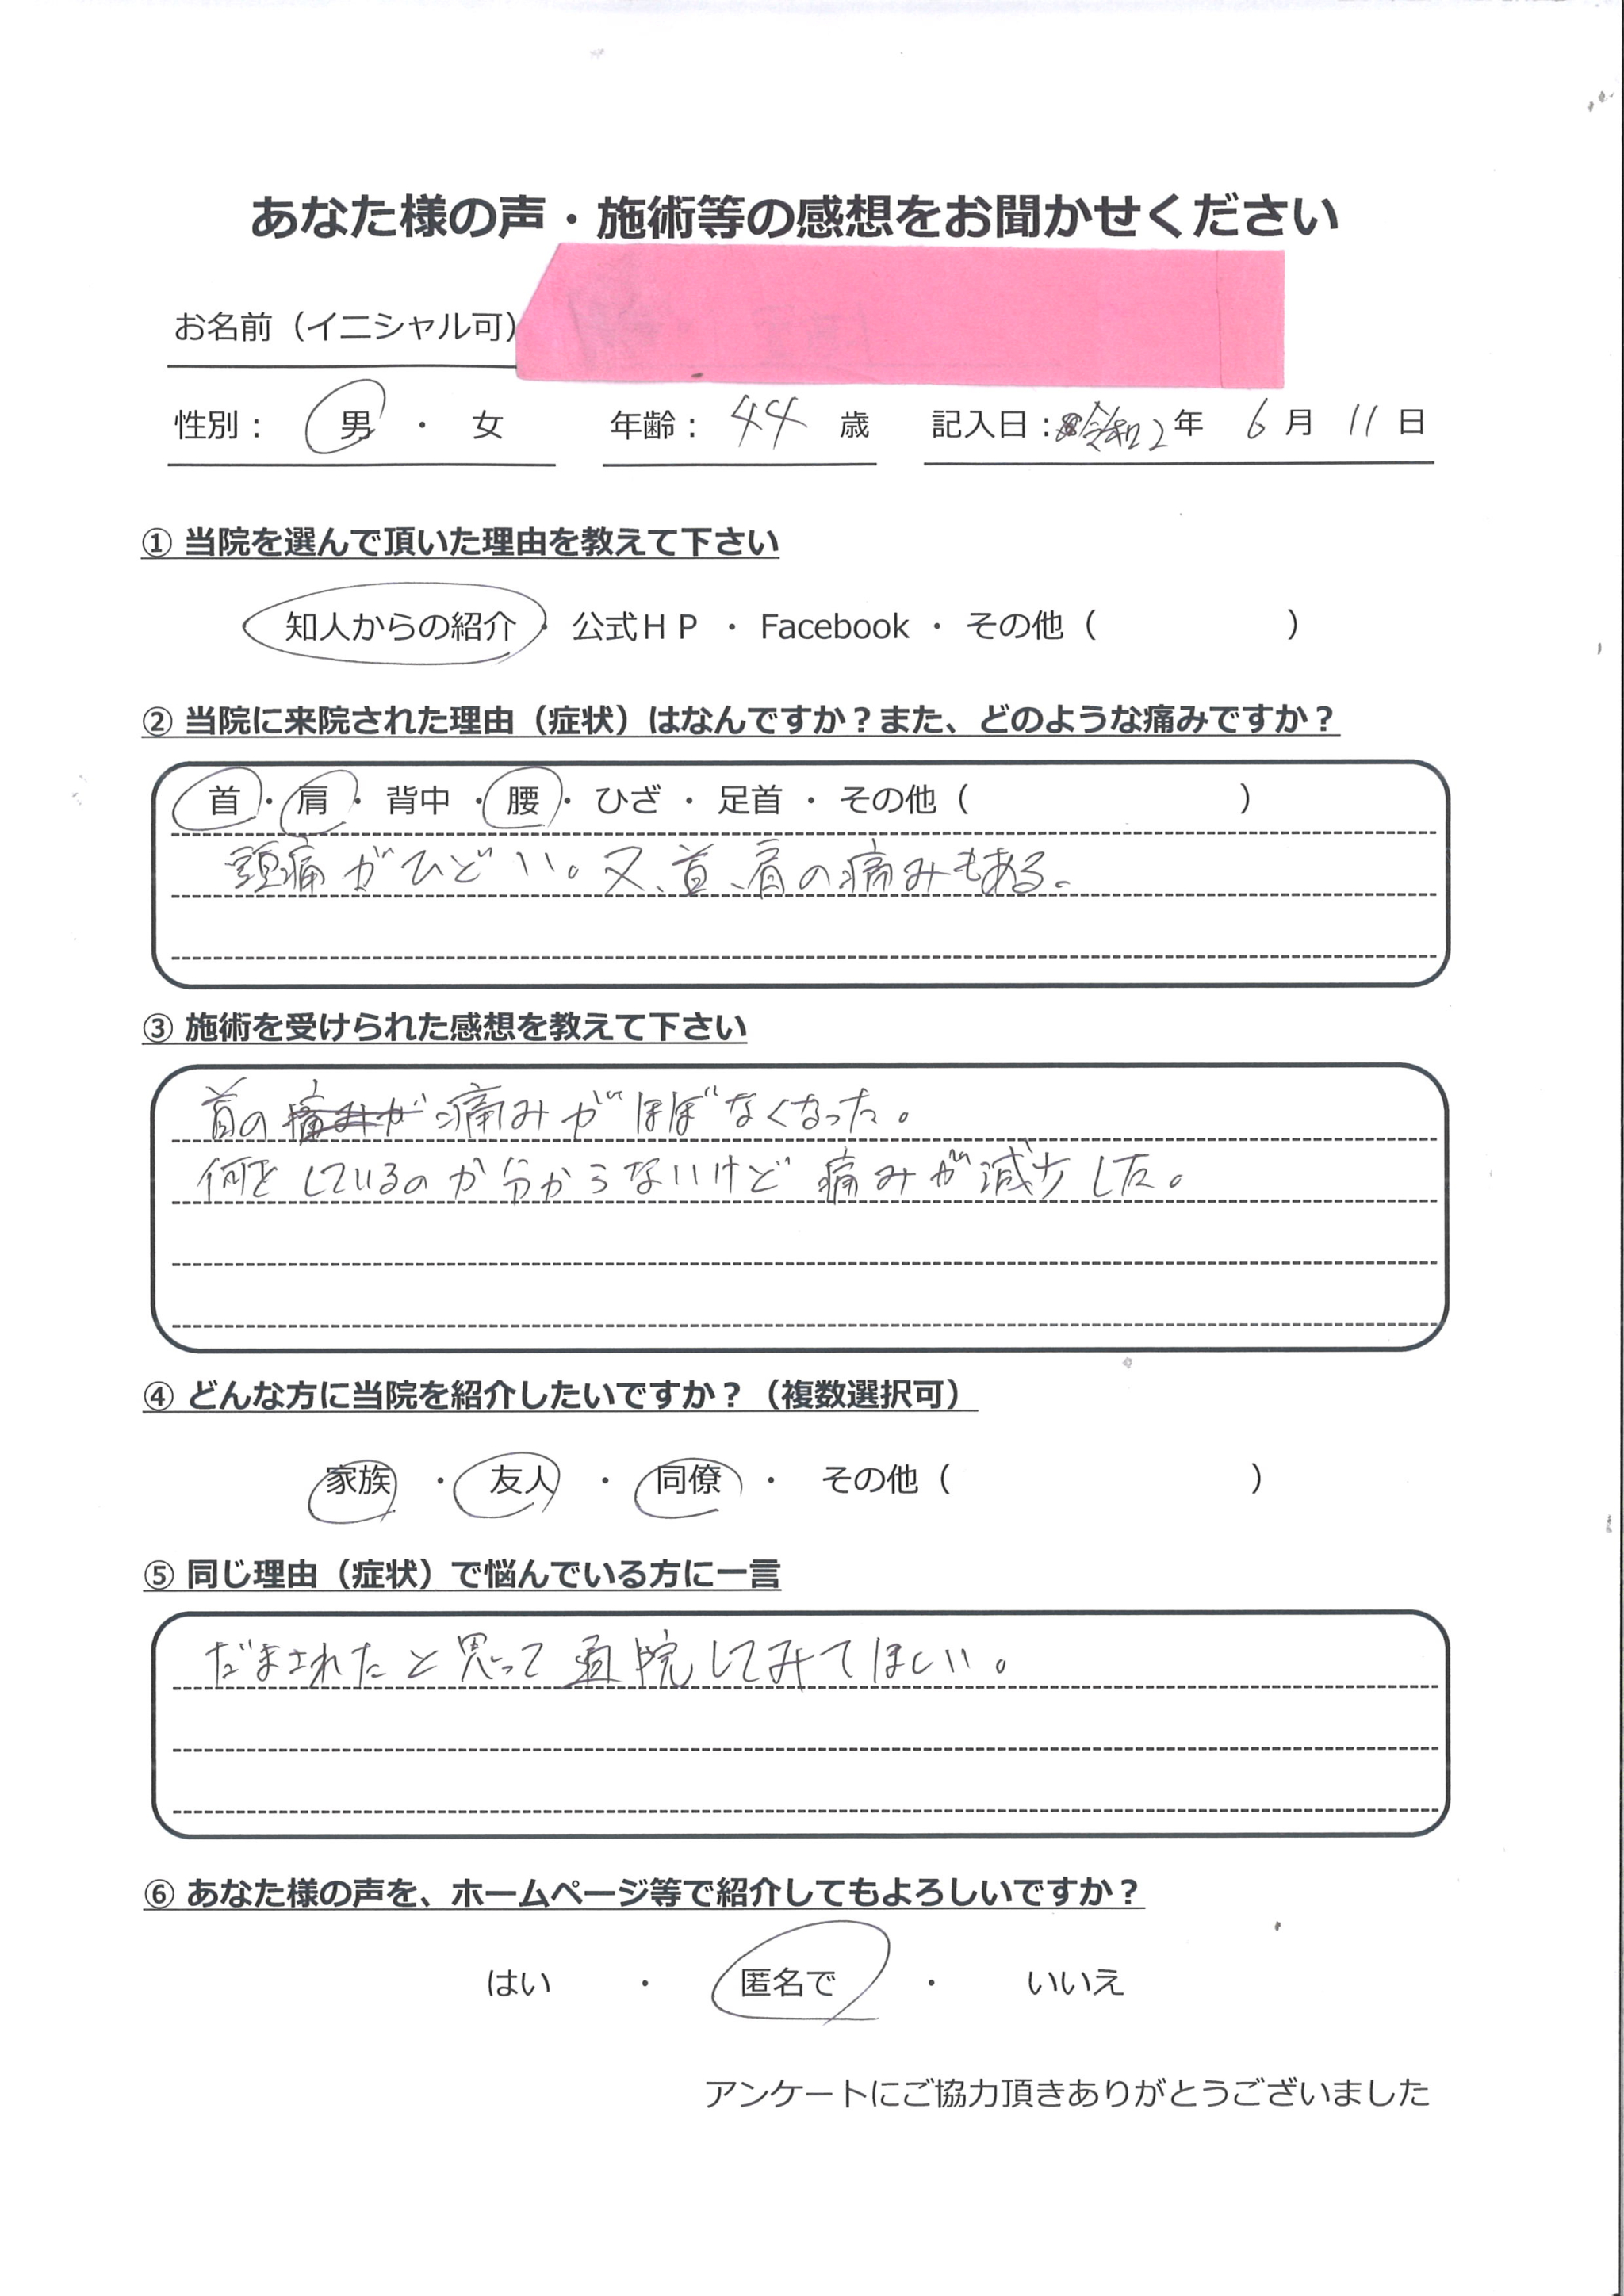 あなた様の声・施術等の感想をお聞かせください
お名前（イニシャル可）
性別： 男 ・ 女 年齢： 44 歳 記入日：令和2年 6月 11日
① 当院を選んで頂いた理由を教えて下さい
知人からの紹介・ 公式ＨＰ ・ Facebook ・ その他（ ）
② 当院に来院された理由（症状）はなんですか？また、どのような痛みですか？
首・肩・ 背中 ・ 腰・ ひざ ・ 足首 ・ その他（ ）
頭痛がひどい。又、首、肩の痛みもある。
③ 施術を受けられた感想を教えて下さい
首の痛みが痛みがほぼなくなった。
何をしているのか分からないけど痛みが減少した。
④ どんな方に当院を紹介したいですか？（複数選択可）
家族 ・ 友人 ・ 同僚 ・ その他（ ）
⑤ 同じ理由（症状）で悩んでいる方に一言
だまされたと思って通院してみてほしい。
⑥ あなた様の声を、ホームページ等で紹介してもよろしいですか？
はい ・ 匿名で ・ いいえ
アンケートにご協力頂きありがとうございました